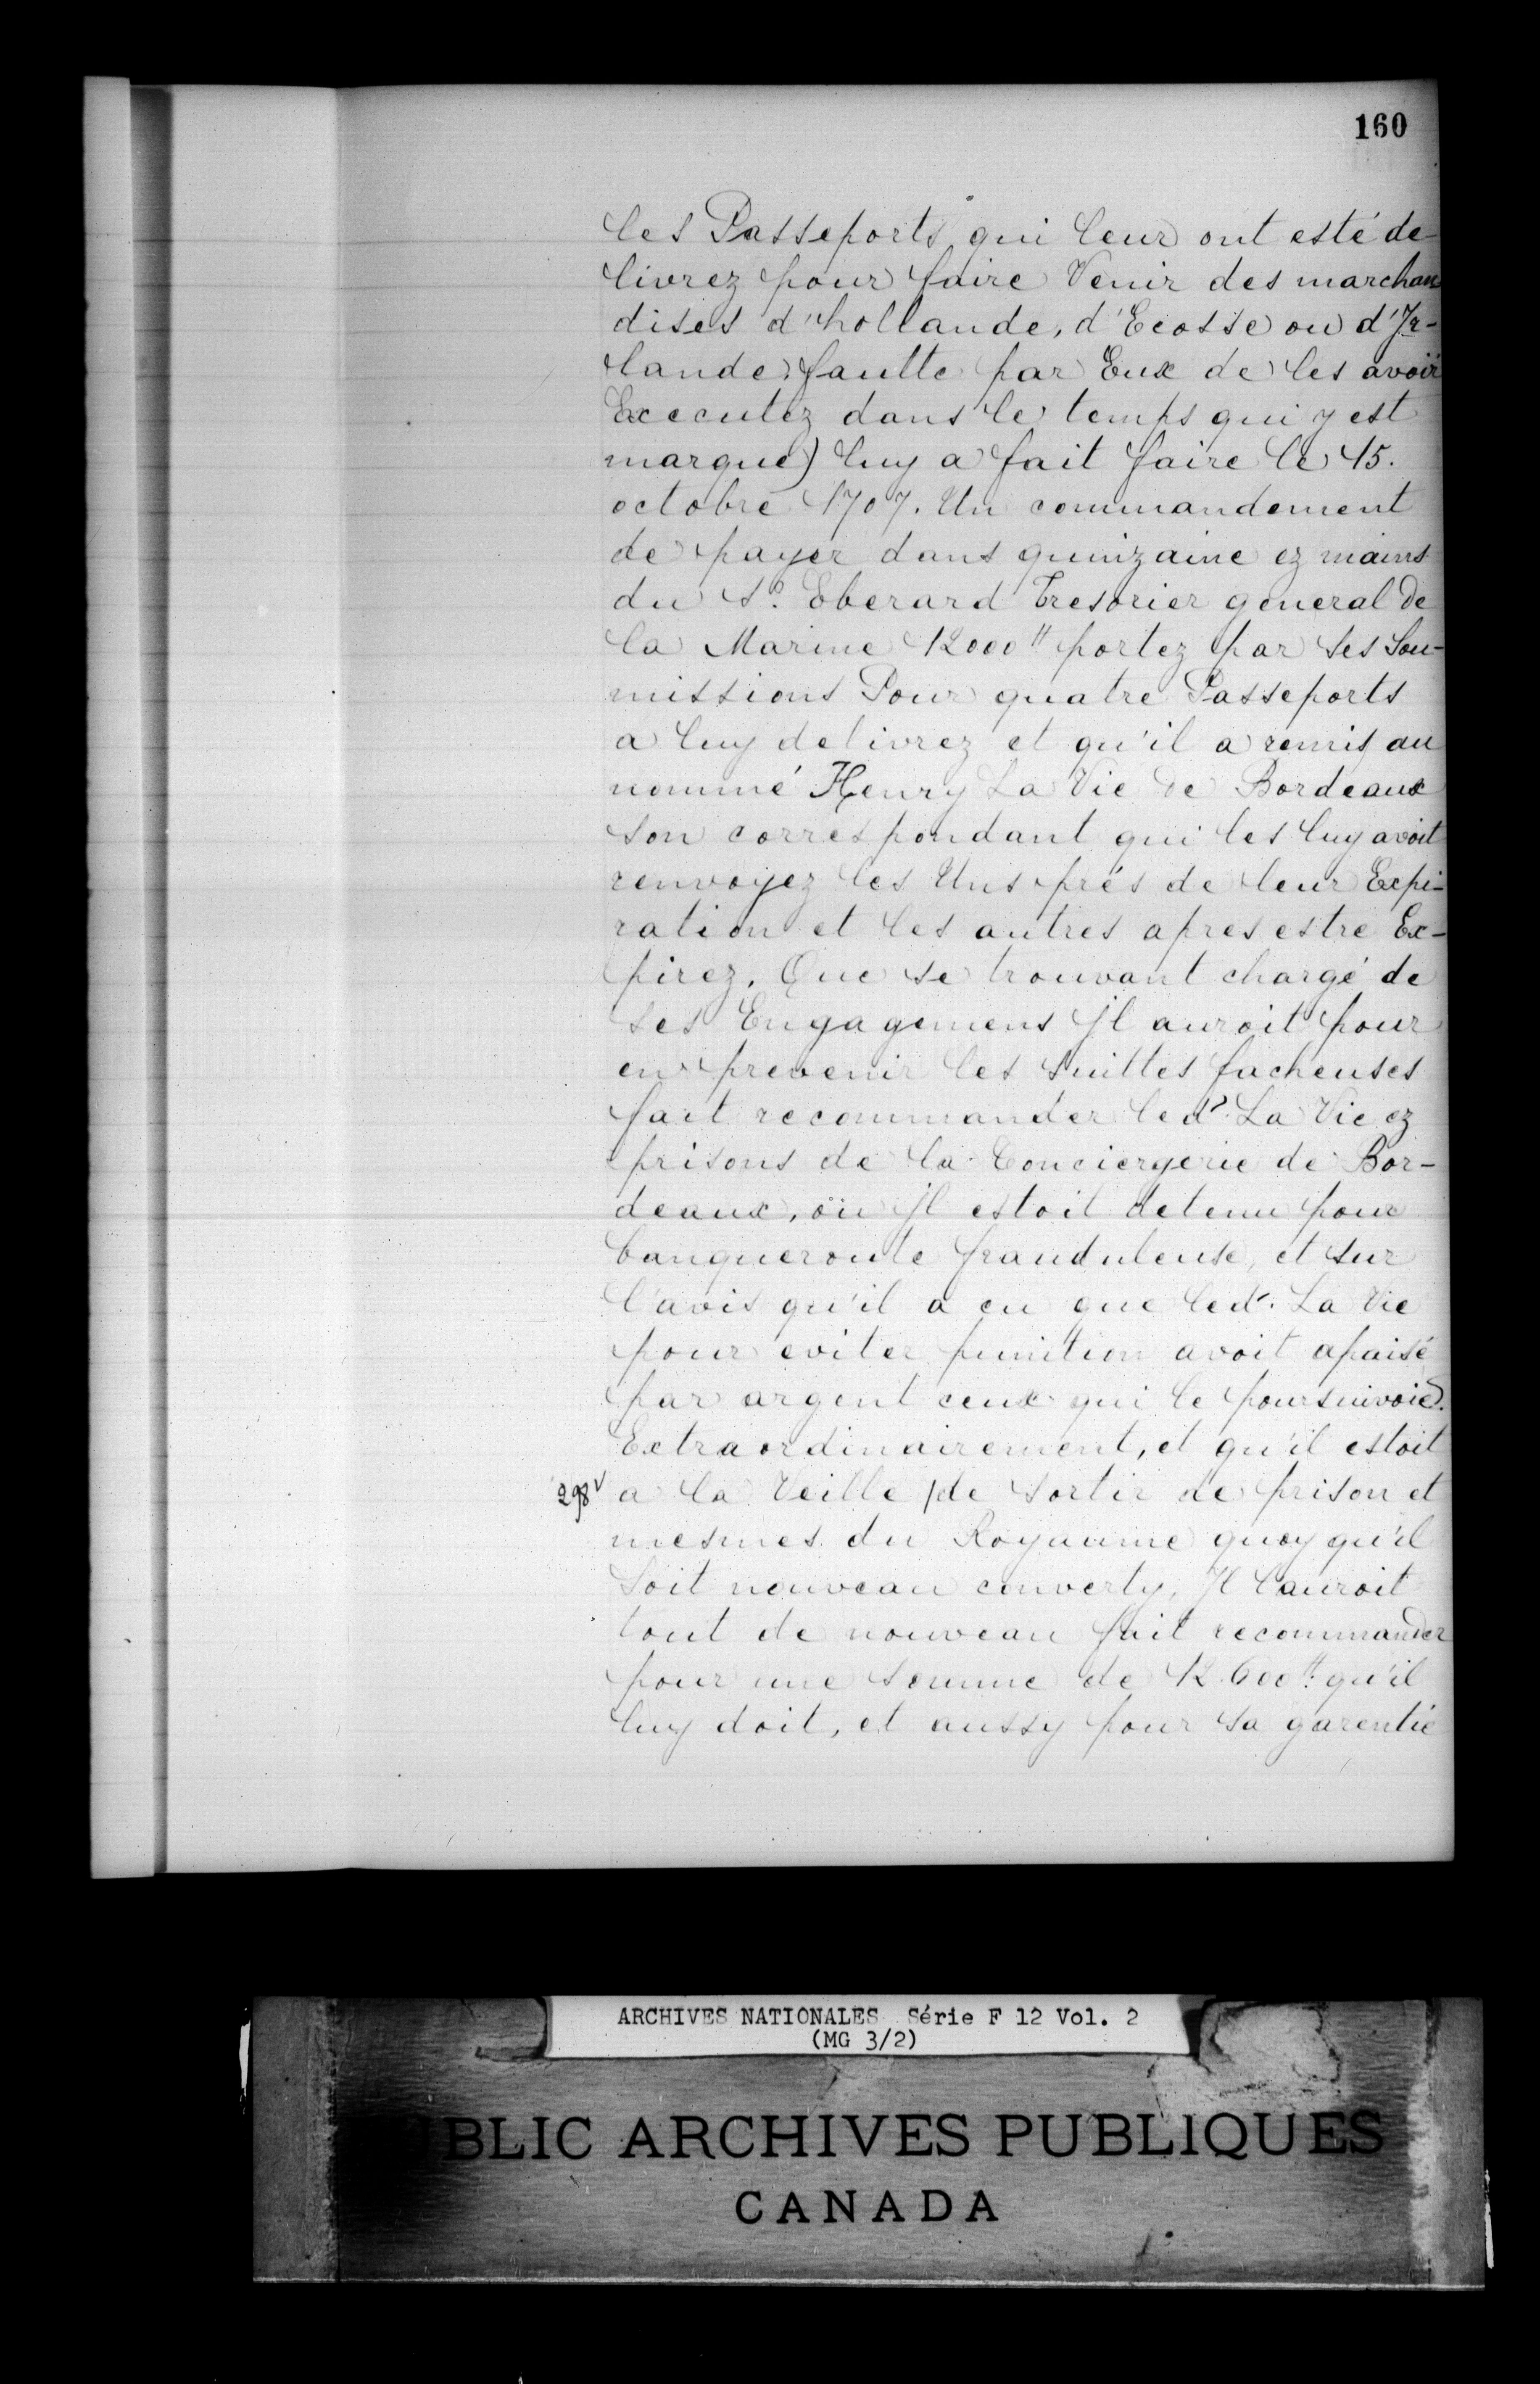 160
les Passeports qui leur ont esté de-
livrez pour faire Venir des marchan
dises d'hollande, d'Ecosse ou d'Ir-
lande, faulte par Eux de les avoir
Executez dans le temps qui y est
marqué) luy a fait faire le 15.
octobre 1707. Un commandement
de payer dans quinzaine ez mains
du Sr. Eberard Tresorier general de
la Marine 12000tt portez par ses Sou-
missions Pour quatre Passeports
a luy delivrez et qu'il a remis au
nommé Henry La Vie de Bordeaux
son correspondant qui les luy avoit
renvoyez les Uns prés de leur Expi-
ration et les autres apres estre Ex-
pirez. Que se trouvant chargé de
ses Engagemens jl auroit pour
en prevenir les suittes facheuses
fait recommander led. La Vie ez
prisons de la Conciergerie de Bor-
deaux, ou jl estoit detenu pour
banqueroute frauduleuse, et sur
l'avis qu'il a eu que led. La Vie
pour eviter punition avoit apaisé
par argent ceux qui le poursuivoiẽ.
Extraordinairement, et qu'il estoit
298v a la Veille /de sortir de prison et
mesmes du Royaume quoy qu'il
soit nouveau converty, Il l'auroit
tout de nouveau fait recommander
pour une somme de 12.600tt qu'il
luy doit, et aussy pour sa garentie
ARCHIVES NATIONALES Série F 12 Vol. 2
(MG 3/2)
BLIC ARCHIVES PUBLIQUES
CANADA